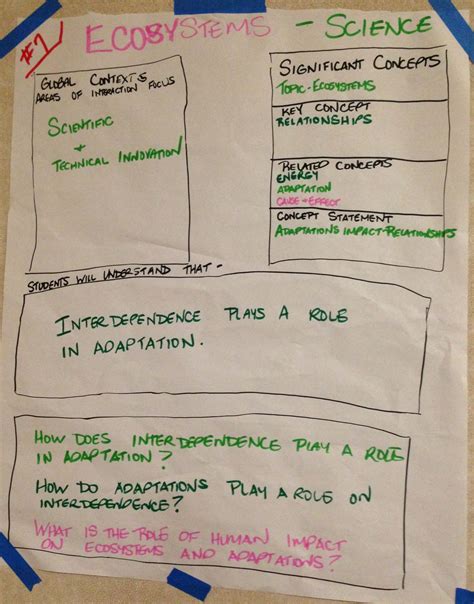 #7
ECOSYSTEMS - SCIENCE
GLOBAL CONTEXTS
AREAS OF INTERACTION FOCUS
SCIENTIFIC
+
TECHNICAL INNOVATION
SIGNIFICANT CONCEPTS
TOPIC - ECOSYSTEMS
KEY CONCEPT
RELATIONSHIPS
RELATED CONCEPTS
ENERGY
ADAPTATION
CAUSE + EFFECT
CONCEPT STATEMENT
ADAPTATIONS IMPACT RELATIONSHIPS
STUDENTS WILL UNDERSTAND THAT -
INTERDEPENDENCE PLAYS A ROLE
IN ADAPTATION.
HOW DOES INTERDEPENDENCE PLAY A ROLE
IN ADAPTATION?
HOW DO ADAPTATIONS PLAY A ROLE ON
INTERDEPENDENCE?
WHAT IS THE ROLE OF HUMAN IMPACT
ON ECOSYSTEMS AND ADAPTATIONS?